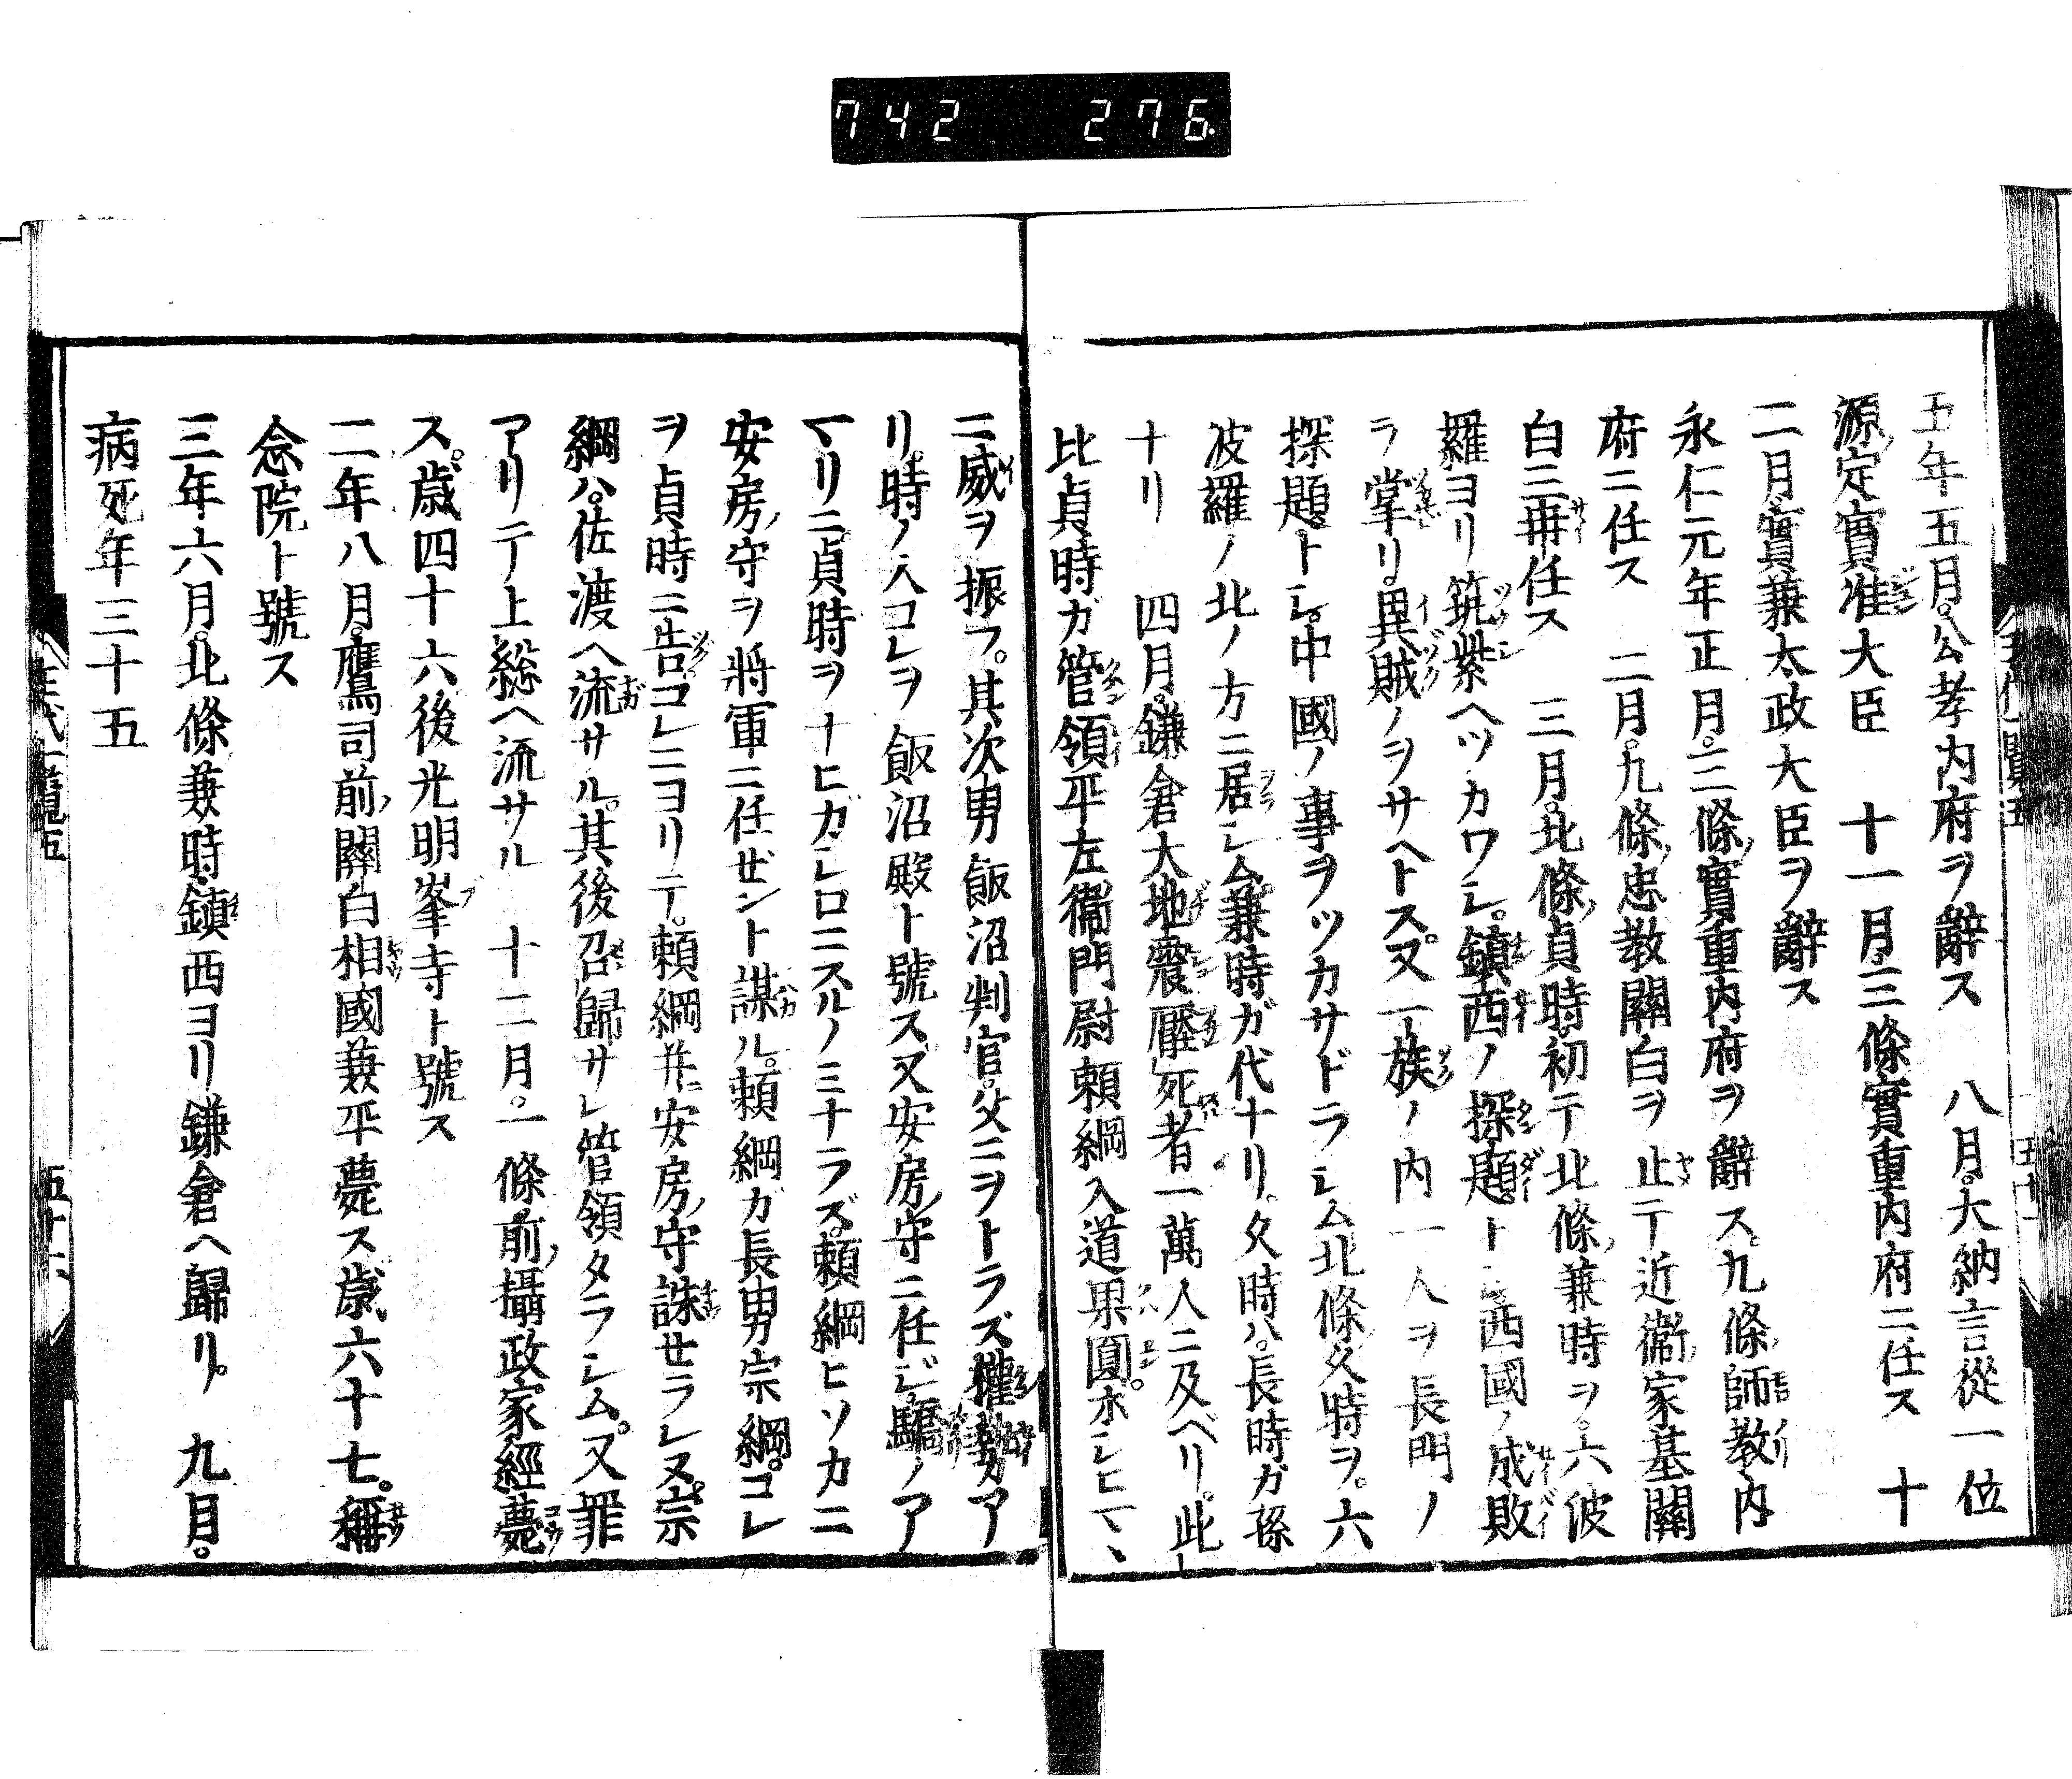 742 276
五年五月。公孝内府ヲ辭ス 八月。大納言從一位
源定實准大臣 十一月。三條實重内府ニ任ス 十
二月。實兼太政大臣ヲ辭ス
永仁元年正月。三條實重内府ヲ辭ス。九條師教内
府ニ任ス 二月。九條忠教關白ヲ止テ近衞家基關
白ニ再任ス 三月。北條貞時。初テ北條兼時ヲ。六波
羅ヨリ筑紫ヘツカワシ。鎮西ノ探題トシ西國ノ成敗
ヲ掌リ。異賊ノヲサヘトス。又一族ノ内一人ヲ長門ノ
探題トシ。中國ノ事ヲツカサドラシム北條久時ヲ。六
波羅ノ北ノ方ニ居シム。兼時ガ代ナリ。久時ハ。長時ガ孫
ナリ 四月。鎌倉大地震壓死者一萬人ニ及ベリ。此
比貞時ガ管領平左衞門尉頼綱入道果圓。ホシヒマヽ
ニ威ヲ振フ。其次男飯沼判官。父ニヲトラズ權勢ア
リ。時ノ人コレヲ飯沼殿ト號ス又安房守ニ任ジ驕ノア
マリニ。貞時ヲナヒガシロニスルノミナラズ。頼綱ヒソカニ
安房守ヲ將軍ニ任ゼント謀ル。頼綱ガ長男宗綱。コレ
ヲ貞時ニ告。コレニヨリテ。頼綱并ニ安房守誅セラレヌ。宗
綱ハ。佐渡ヘ流サル。其後召歸サレ管領タラシム。又罪
アリテ上総ヘ流サル 十二月。一條前攝政家經薨
ス。歳四十六後光明峯寺ト號ス
二年八月。鷹司前關白相國兼平薨ス歳六十七。稱
念院ト號ス
三年六月。北條兼時。鎮西ヨリ鎌倉ヘ歸リ。 九月。
病死年三十五